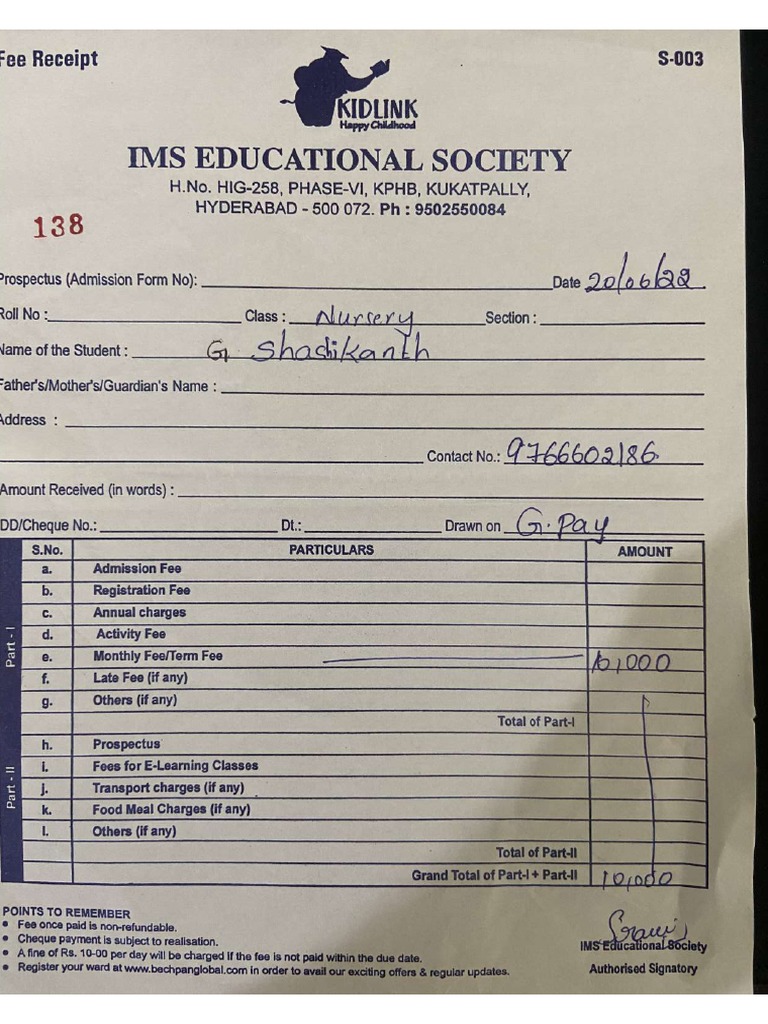 Fee Receipt S-003
KIDLINK
Happy Childhood
IMS EDUCATIONAL SOCIETY
H.No. HIG-258, PHASE-VI, KPHB, KUKATPALLY,
HYDERABAD - 500 072. Ph : 9502550084
138
Prospectus (Admission Form No): Date 20/06/22
Roll No : Class : Nursery Section :
Name of the Student : G. Shashikanth
Father's/Mother's/Guardian's Name :
Address :
Contact No.: 9766602186
Amount Received (in words) :
DD/Cheque No.: Dt.: Drawn on G. Pay
S.No. PARTICULARS AMOUNT
Part - I
a. Admission Fee
b. Registration Fee
c. Annual charges
d. Activity Fee
e. Monthly Fee/Term Fee 10,000
f. Late Fee (if any)
g. Others (if any)
Total of Part-I
Part - II
h. Prospectus
i. Fees for E-Learning Classes
j. Transport charges (if any)
k. Food Meal Charges (if any)
l. Others (if any)
Total of Part-II
Grand Total of Part-I + Part-II 10,000
POINTS TO REMEMBER
• Fee once paid is non-refundable.
• Cheque payment is subject to realisation.
• A fine of Rs. 10-00 per day will be charged if the fee is not paid within the due date.
• Register your ward at www.bachpanglobal.com in order to avail our exciting offers & regular updates.
IMS Educational Society
Authorised Signatory